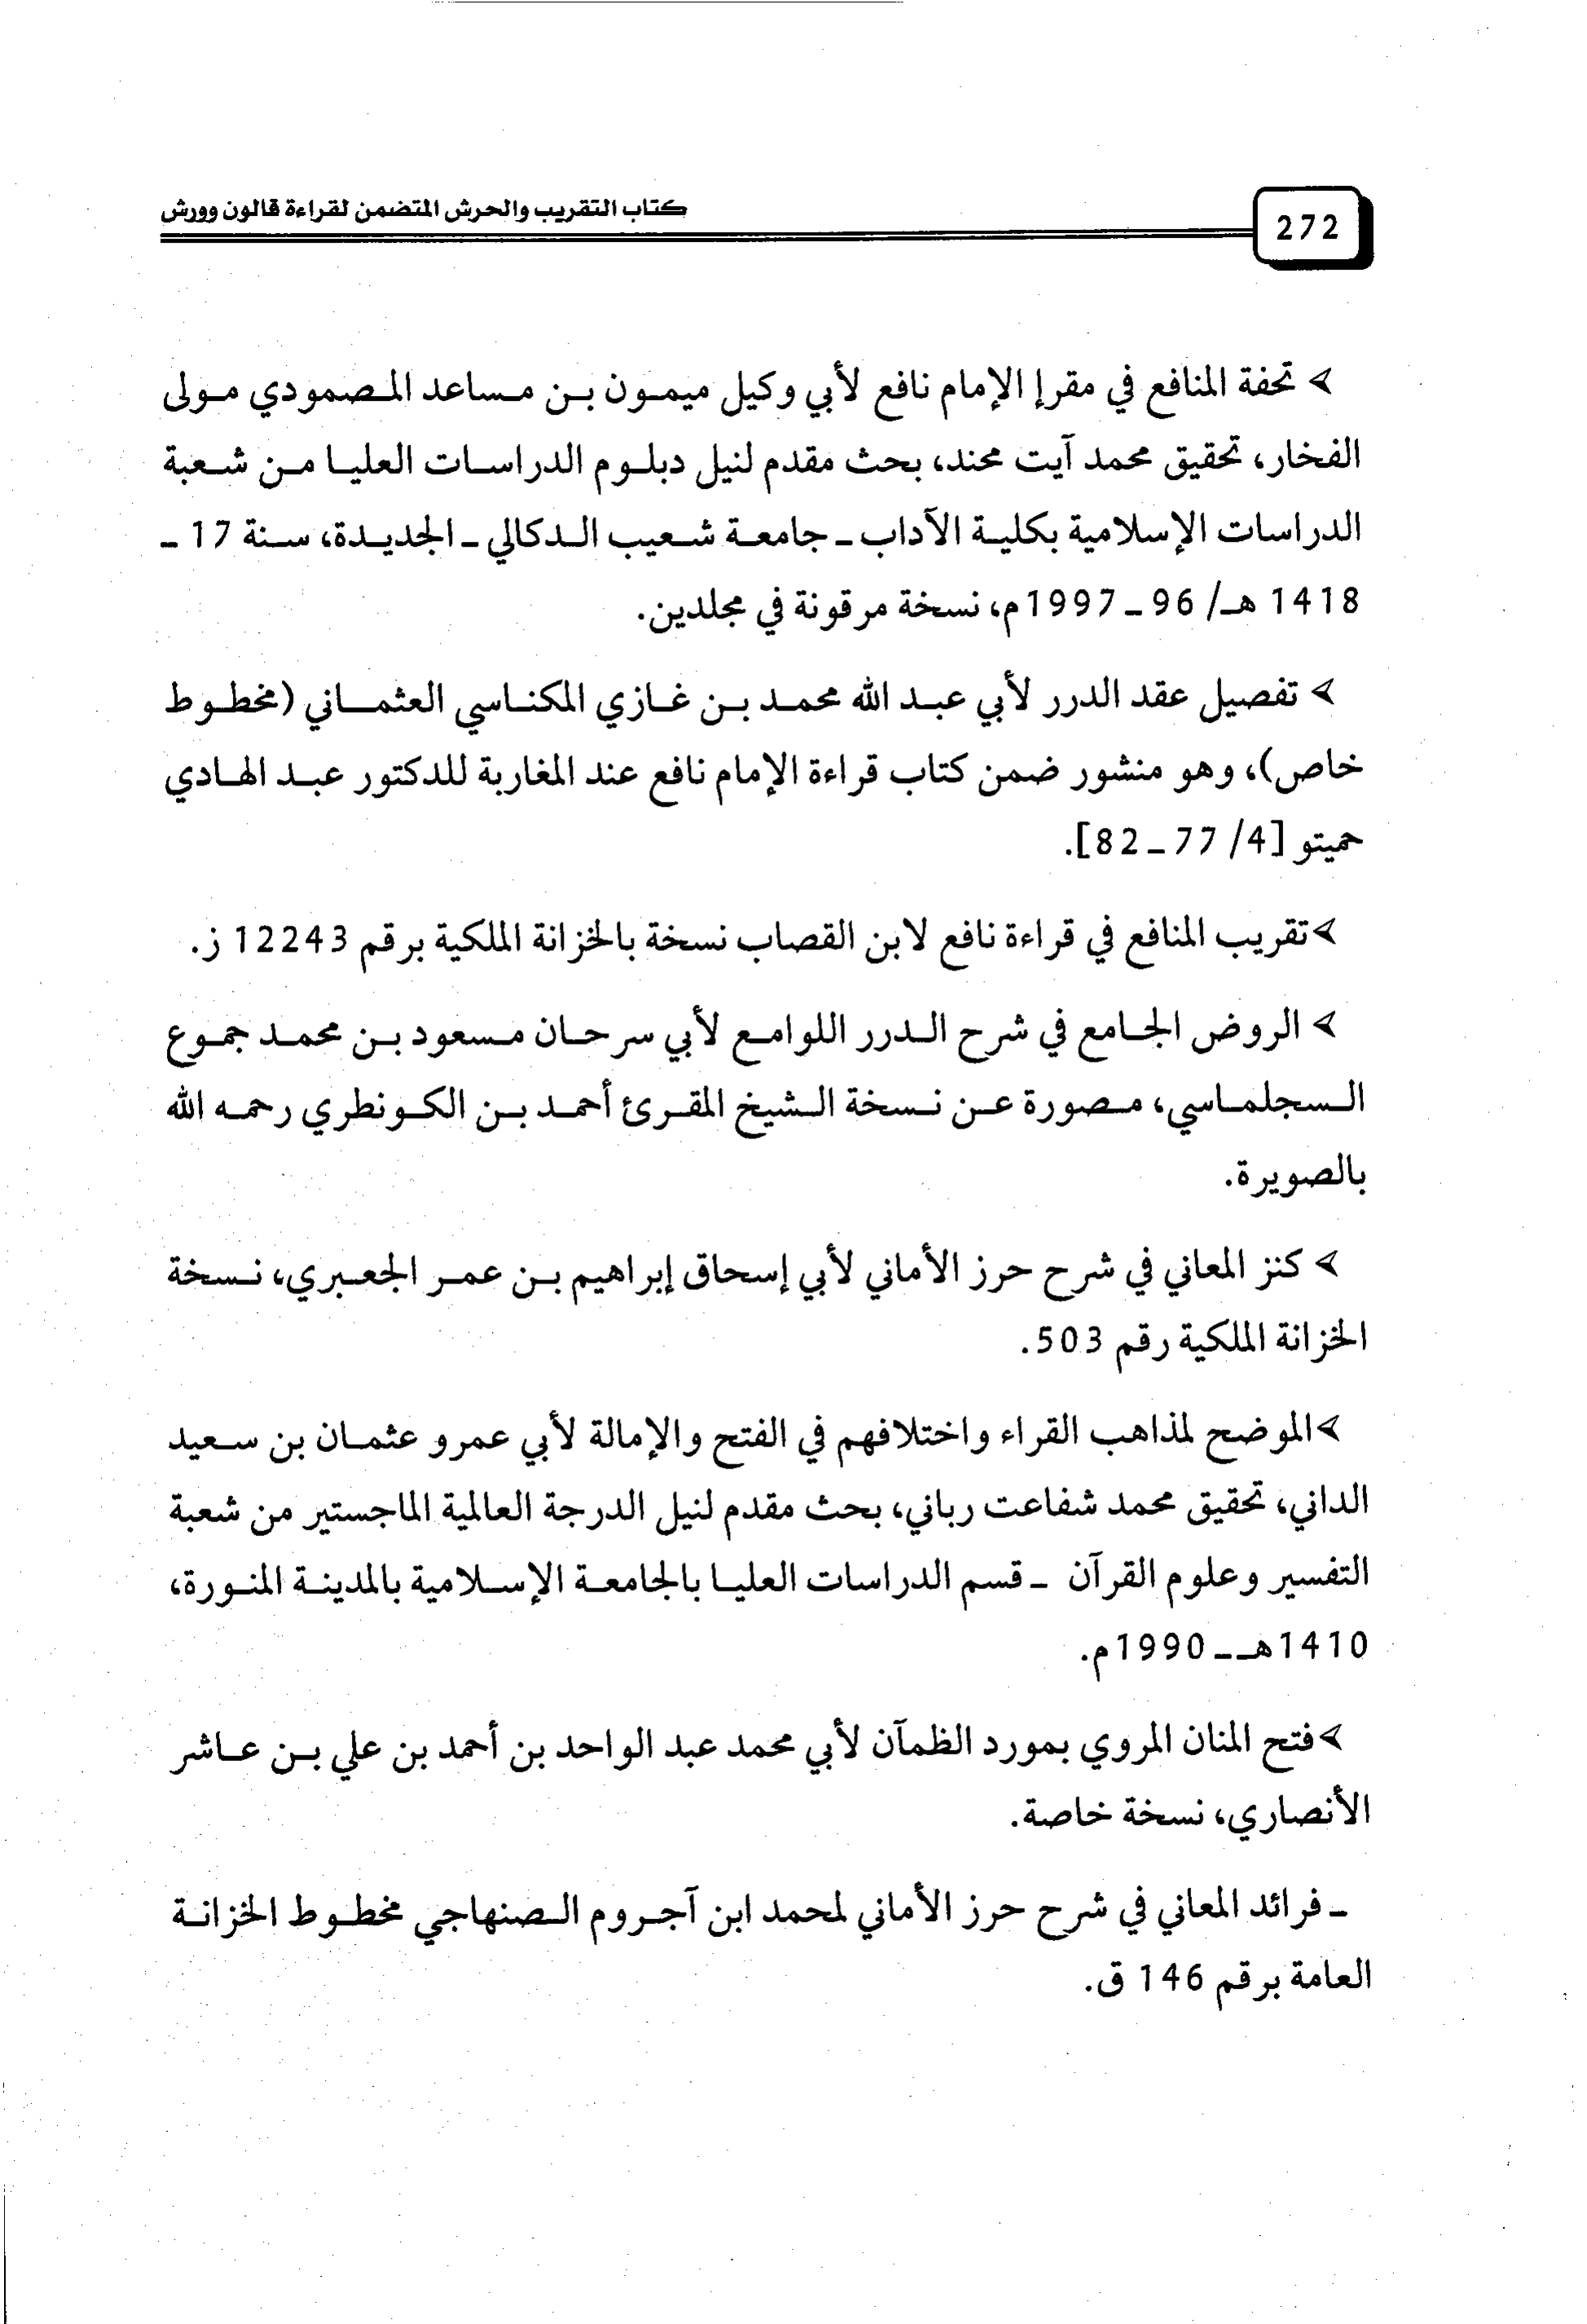 272
كتاب التقريب والحرش المتضمن لقراءة قالون وورش
➢ تحفة المنافع في مقرإ الإمام نافع لأبي وكيل ميمون بن مساعد المصمودي مولى
الفخار، تحقيق محمد آيت محند، بحث مقدم لنيل دبلوم الدراسات العليا من شعبة
الدراسات الإسلامية بكلية الآداب ـ جامعة شعيب الدكالي ـ الجديدة، سنة 17 ـ
1418 هـ/ 96 ـ 1997م، نسخة مرقونة في مجلدين.
➢ تفصيل عقد الدرر لأبي عبد الله محمد بن غازي المكناسي العثماني (مخطوط
خاص)، وهو منشور ضمن كتاب قراءة الإمام نافع عند المغاربة للدكتور عبد الهادي
حميتو [4/ 77 ـ 82].
➢ تقريب المنافع في قراءة نافع لابن القصاب نسخة بالخزانة الملكية برقم 12243 ز.
➢ الروض الجامع في شرح الدرر اللوامع لأبي سرحان مسعود بن محمد جموع
السجلماسي، مصورة عن نسخة الشيخ المقرئ أحمد بن الكونطري رحمه الله
بالصويرة.
➢ كنز المعاني في شرح حرز الأماني لأبي إسحاق إبراهيم بن عمر الجعبري، نسخة
الخزانة الملكية رقم 503.
➢ الموضح لمذاهب القراء واختلافهم في الفتح والإمالة لأبي عمرو عثمان بن سعيد
الداني، تحقيق محمد شفاعت رباني، بحث مقدم لنيل الدرجة العالمية الماجستير من شعبة
التفسير وعلوم القرآن ـ قسم الدراسات العليا بالجامعة الإسلامية بالمدينة المنورة،
1410هـ ـ 1990م.
➢ فتح المنان المروي بمورد الظمآن لأبي محمد عبد الواحد بن أحمد بن علي بن عاشر
الأنصاري، نسخة خاصة.
ـ فرائد المعاني في شرح حرز الأماني لمحمد ابن آجروم الصنهاجي مخطوط الخزانة
العامة برقم 146 ق.